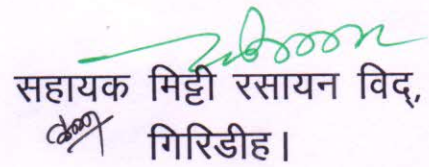 सहायक मिट्टी रसायन विद्,
गिरिडीह।